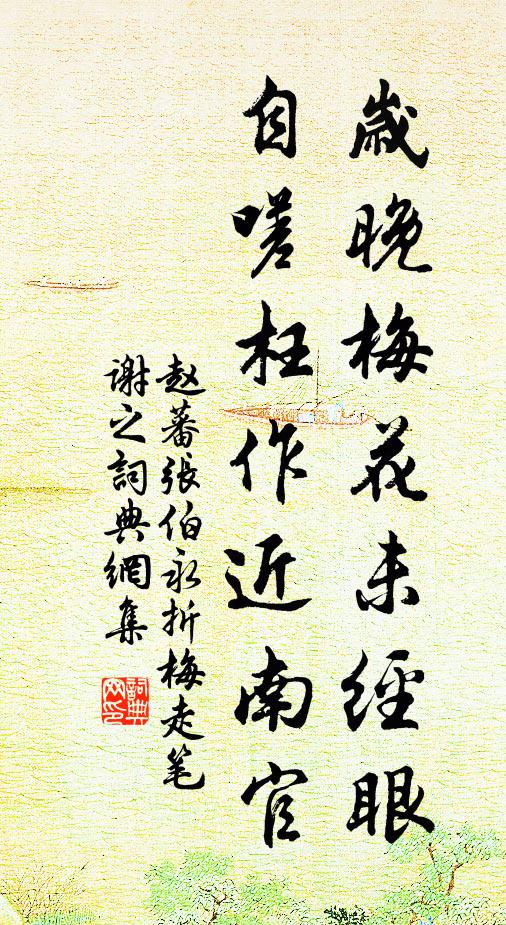 歲晚梅花未經眼
自嗟枉作近南官
赵蕃張伯永折梅走笔
謝之詞典網集
詞典网印